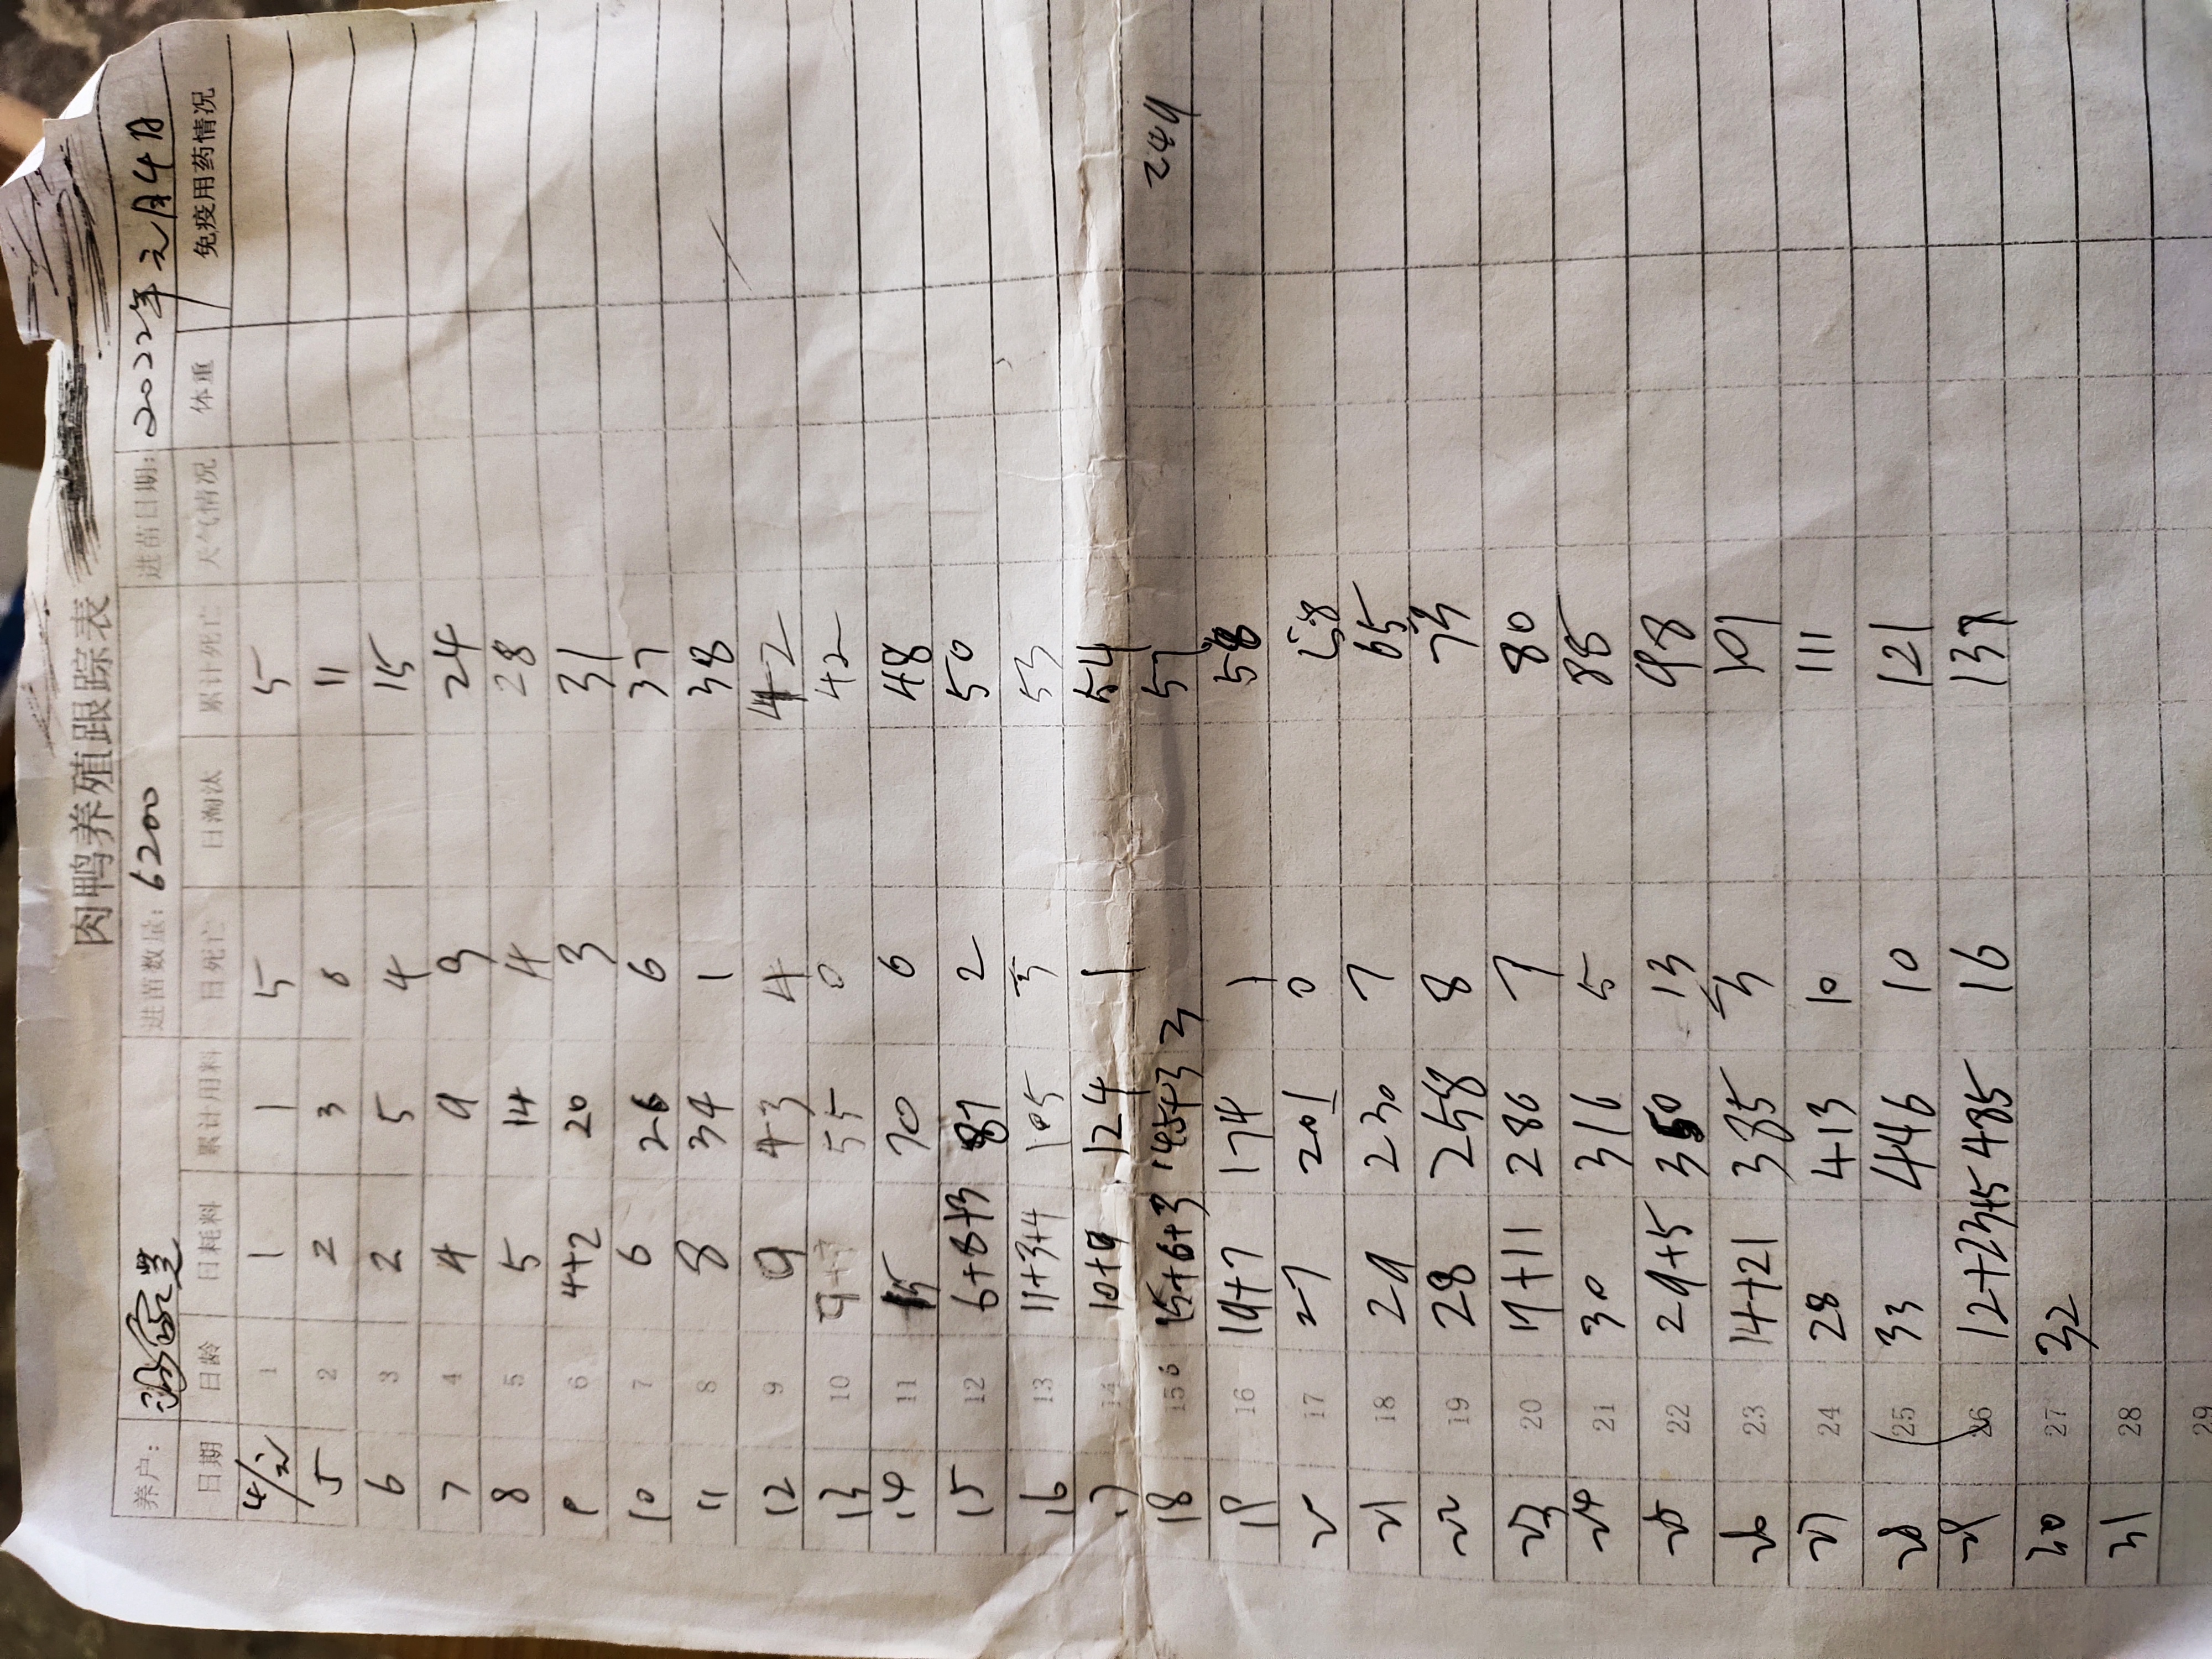 肉鸭养殖跟踪表
养户: 进苗数量: 6200 进苗日期: 2022年元月4日
日期 日龄 日耗料 累计用料 日死亡 日淘汰 累计死亡 天气情况 体重 免疫用药情况
4/元 1 1 1 5 5
5 2 2 3 6 11
6 3 2 5 4 15
7 4 4 9 9 24
8 5 5 14 4 28
9 6 4+2 20 3 31
10 7 6 26 6 37
11 8 8 34 1 38
12 9 9 43 4 42
13 10 55 0 42
14 11 15 70 6 48
15 12 6+8+3 87 2 50
16 13 11+3+4 105 3 53
17 14 10+9 124 1 54
18 15 15+6+3 145+3 3 57 244
19 16 19+7 174 1 58
20 17 27 201 0 58
21 18 29 230 7 65
22 19 28 258 8 73
23 20 17+11 286 7 80
24 21 30 316 5 85
25 22 29+5 350 13 98
26 23 14+21 385 3 101
27 24 28 413 10 111
28 25 33 446 10 121
29 26 12+23+5 485 16 137
30 27 32
31 28
29